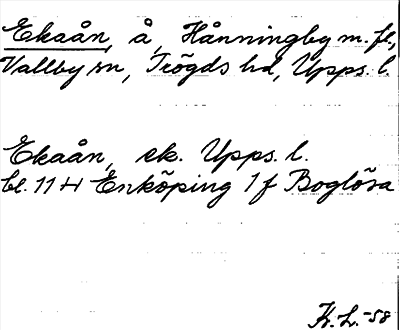 Ekaån, å, Hånningby m. fl.,
Vallby sn, Trögds hd, Upps. l.
Ekaån, ek. Upps. l.
bl. 11 H Enköping 1 f Boglösa
K. L. -58